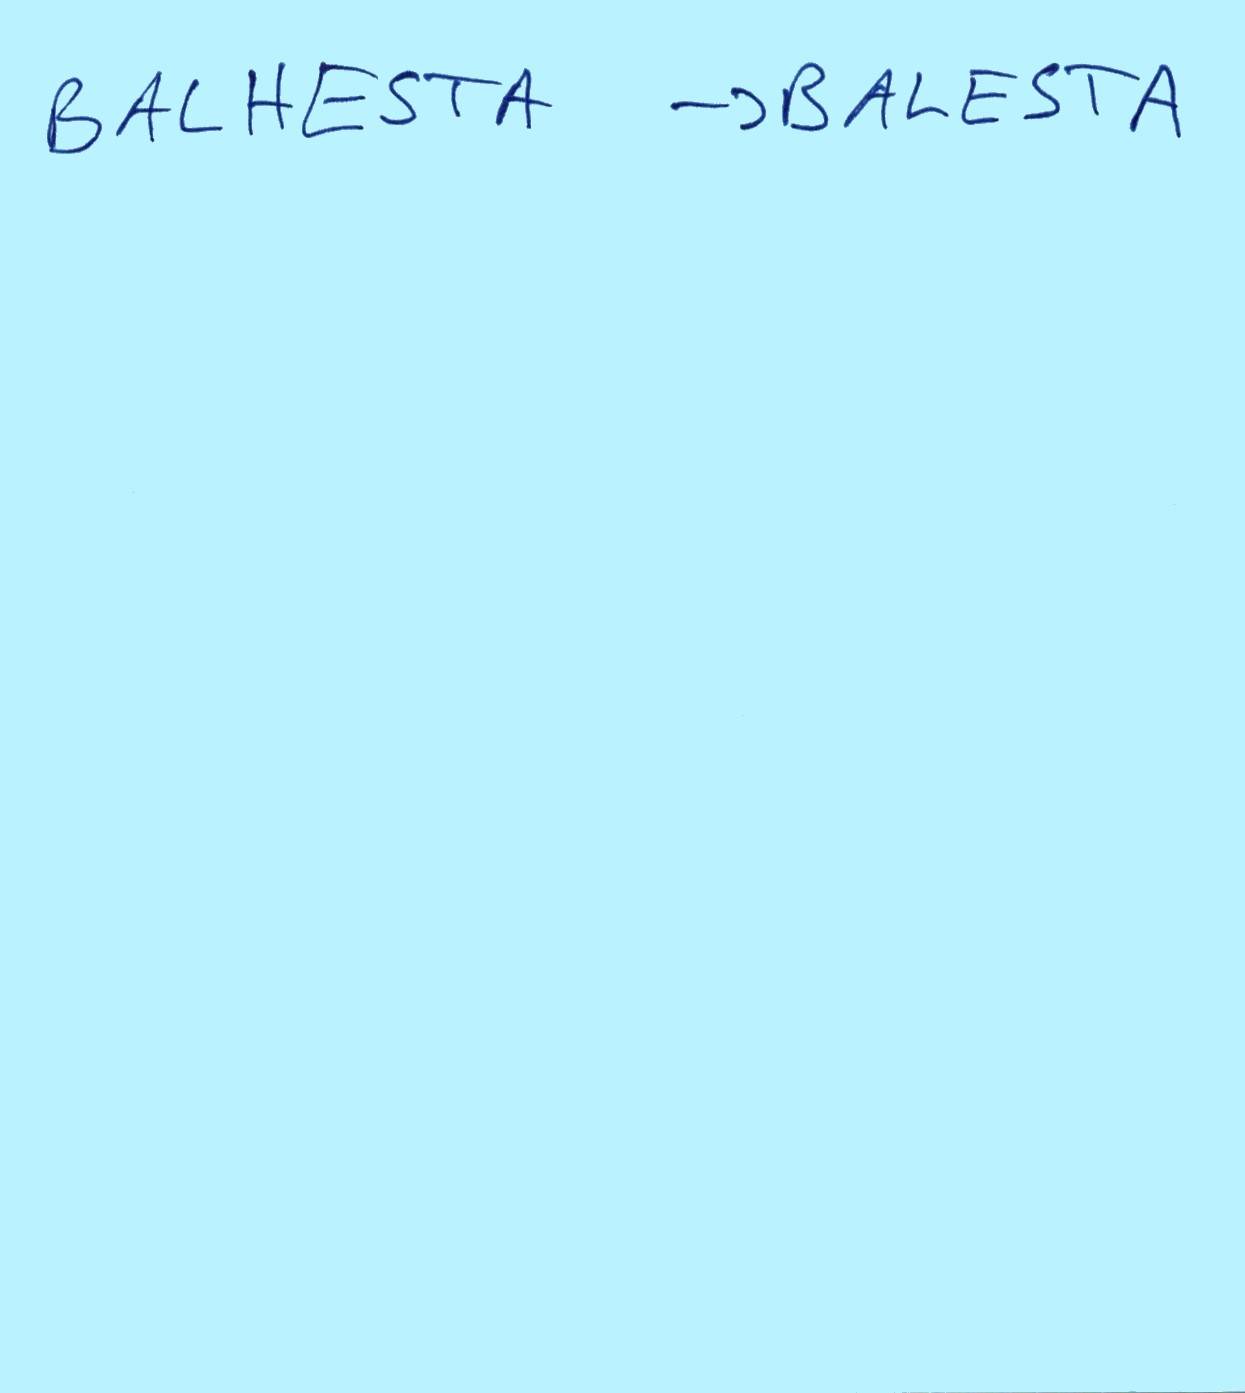 BALHESTA → BALESTA